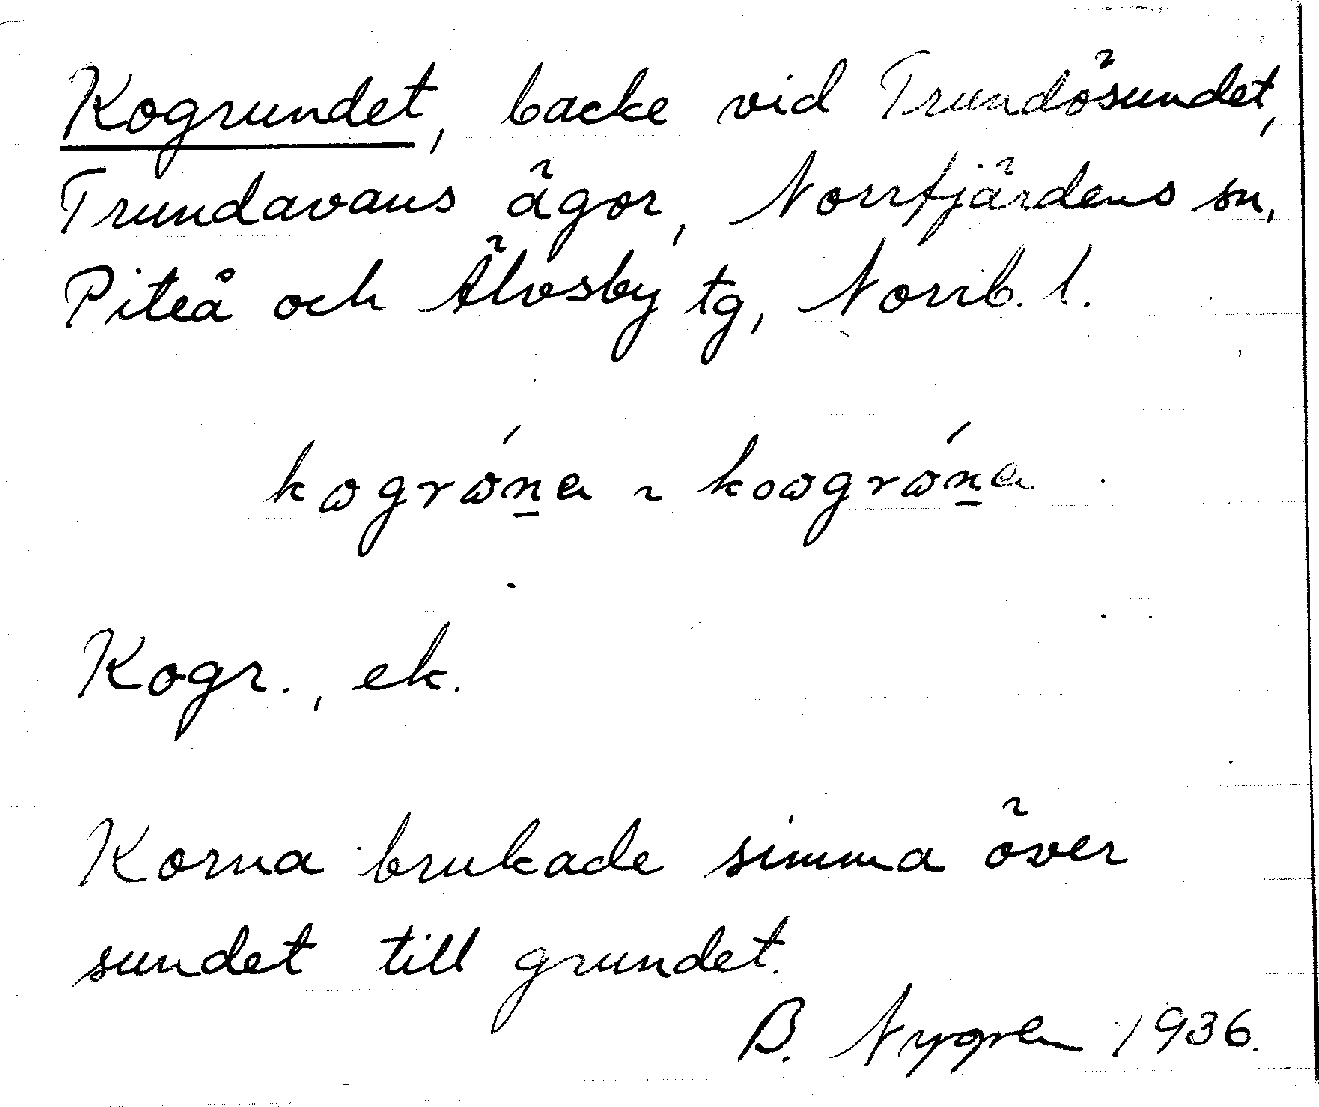 Kogrundet, backe vid Trundösundet,
Trundavans ägor, Norrfjärdens sn,
Piteå och Älvsby tg, Norrb. l.
kogróṉa ~ koogróṉa
Kogr., ek.
Korna brukade simma över
sundet till grundet.
B. Nygren 1936.